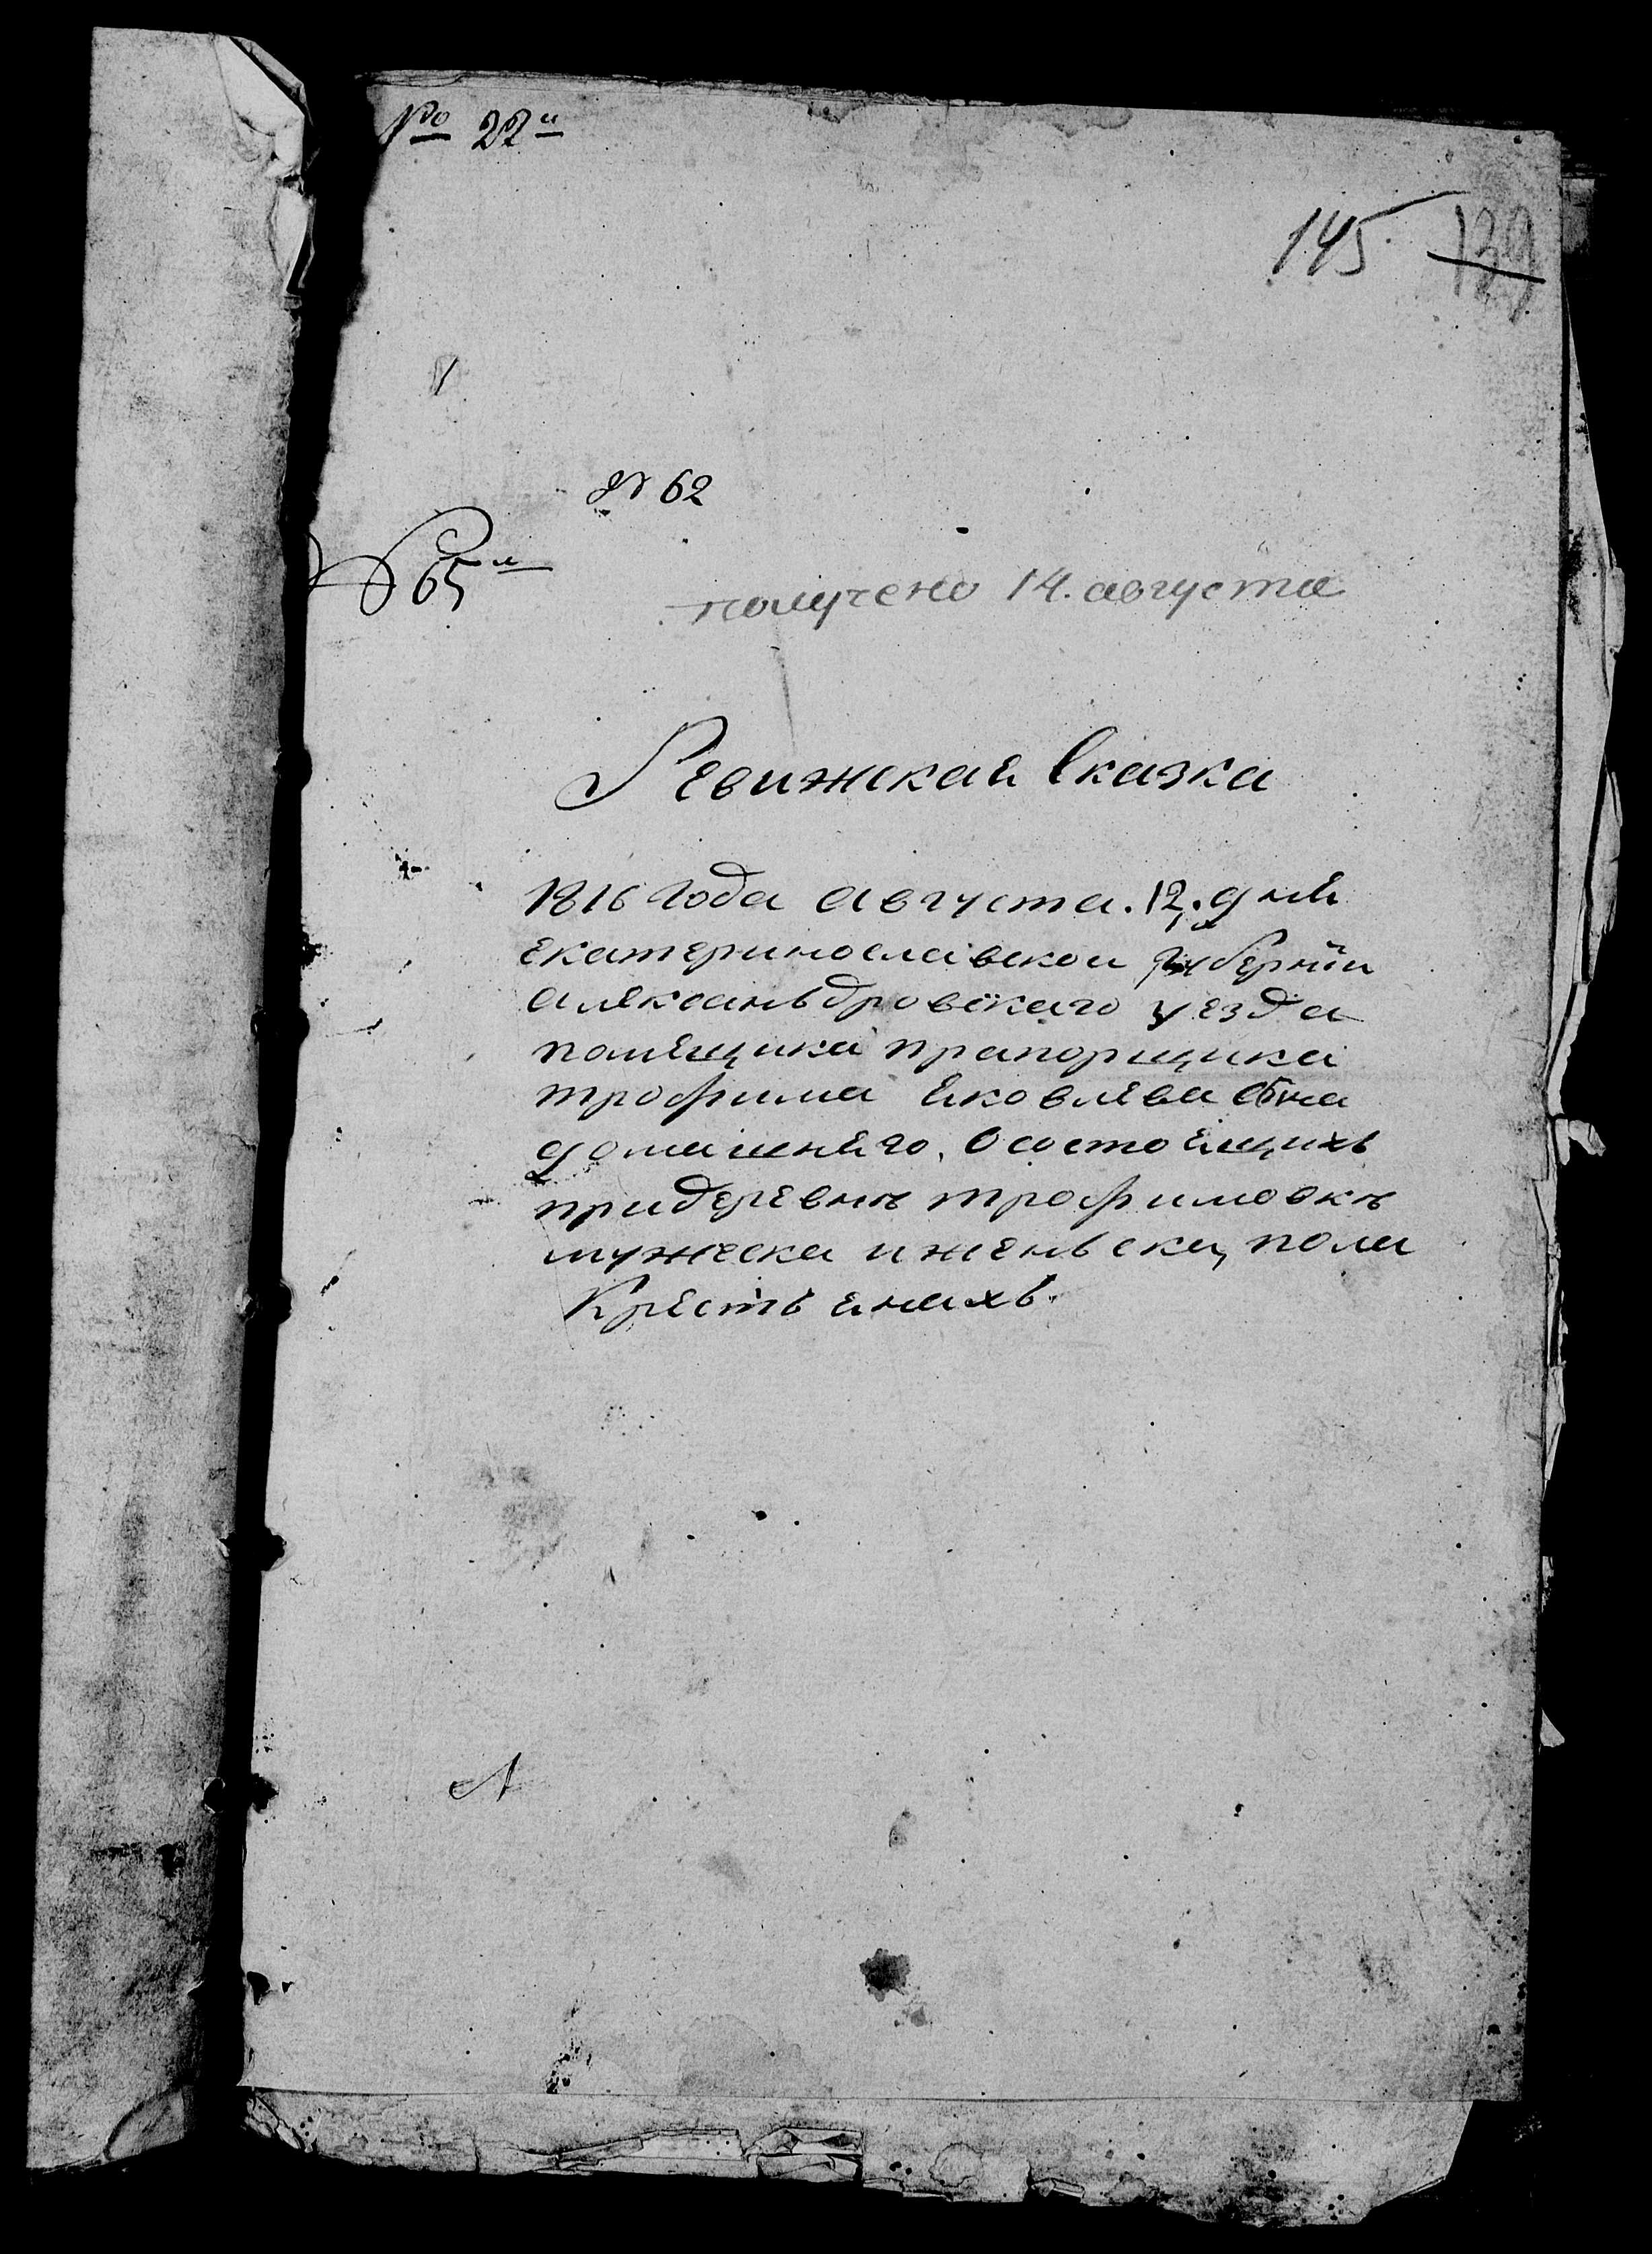 № 22й
145 139
№ 62
№ 65й
получено 14. августа
Ревижская Сказка
1816 Года августа. 12. дня
екатеринославскои Губернии
аляксаньдровскаго уезда
помещика прапорщика
трофима яковлева сына
домашняго. О состоящихъ
при деревнѣ трофимовкѣ
мужеска и женьска, пола
Крестьянахъ.